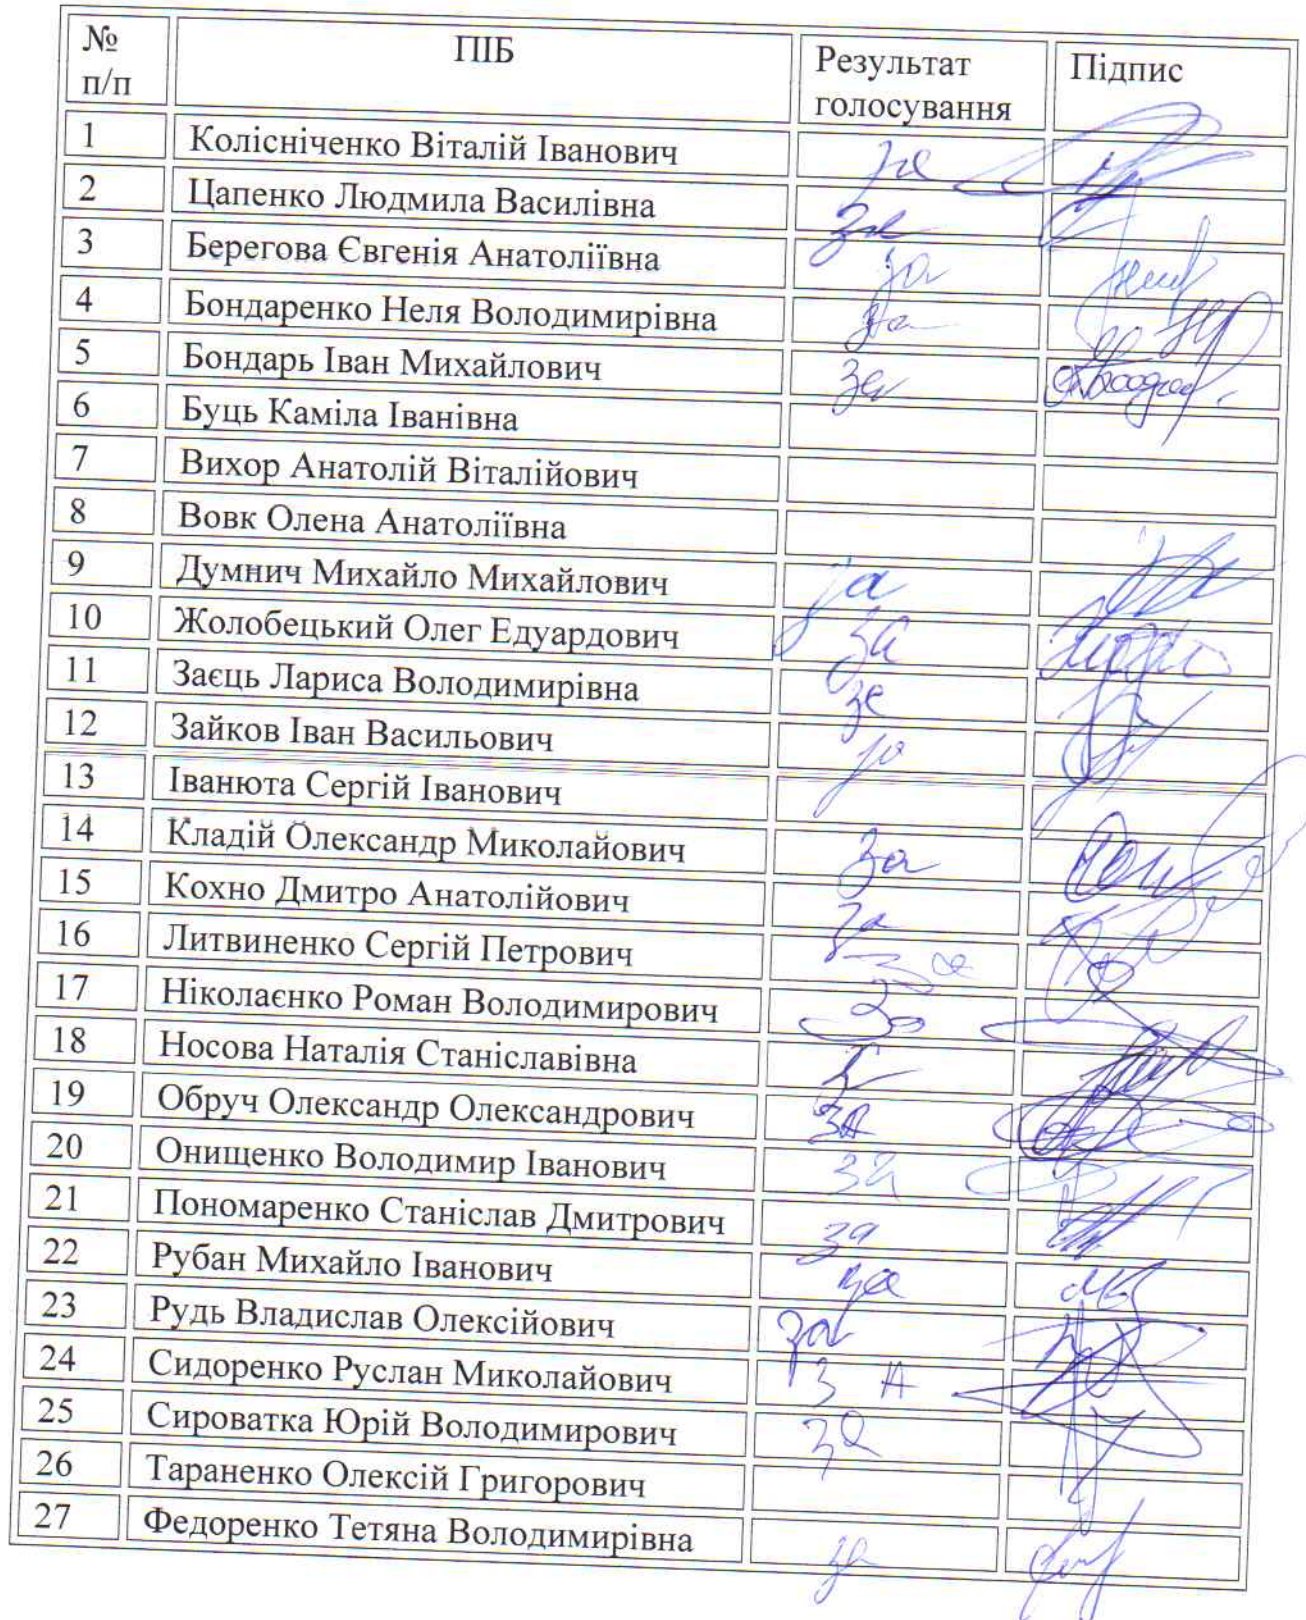 № п/п ПІБ Результат голосування Підпис
1 Колісніченко Віталій Іванович за
2 Цапенко Людмила Василівна за
3 Берегова Євгенія Анатоліївна за
4 Бондаренко Неля Володимирівна за
5 Бондарь Іван Михайлович за
6 Буць Каміла Іванівна
7 Вихор Анатолій Віталійович
8 Вовк Олена Анатоліївна
9 Думнич Михайло Михайлович за
10 Жолобецький Олег Едуардович за
11 Заєць Лариса Володимирівна за
12 Зайков Іван Васильович за
13 Іванюта Сергій Іванович
14 Кладій Олександр Миколайович за
15 Кохно Дмитро Анатолійович за
16 Литвиненко Сергій Петрович за
17 Ніколаєнко Роман Володимирович за
18 Носова Наталія Станіславівна
19 Обруч Олександр Олександрович за
20 Онищенко Володимир Іванович за
21 Пономаренко Станіслав Дмитрович за
22 Рубан Михайло Іванович за
23 Рудь Владислав Олексійович за
24 Сидоренко Руслан Миколайович З А
25 Сироватка Юрій Володимирович за
26 Тараненко Олексій Григорович
27 Федоренко Тетяна Володимирівна за